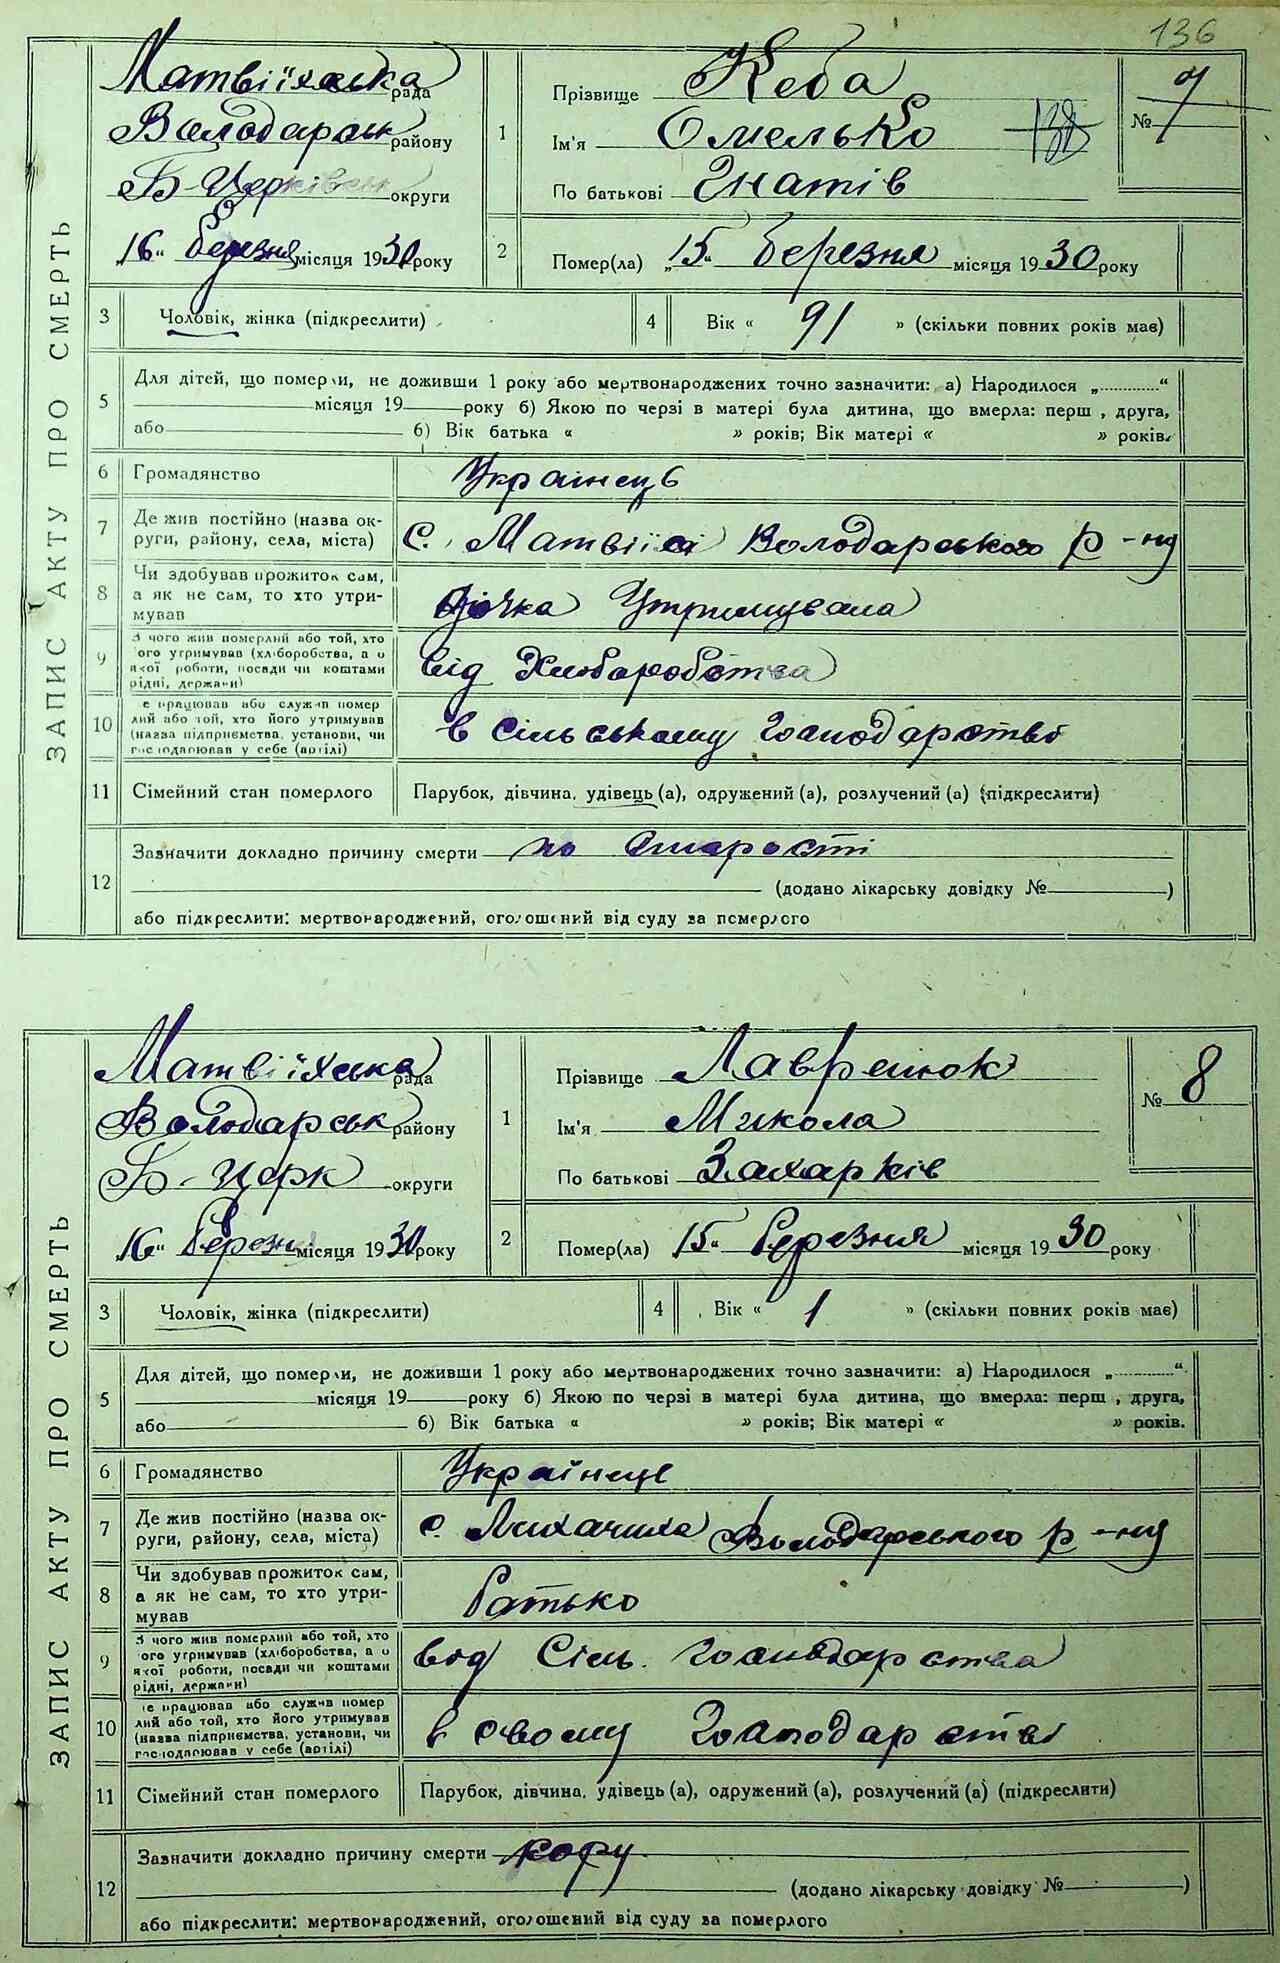 136
ЗАПИС АКТУ ПРО СМЕРТЬ
Матвіїхська рада
Володарськ району
Б-Церківськ округи
„16“ березня місяця 1930 року
1
Прізвище Кеба
Ім'я Омелько
По батькові Гнатів
№ 7
2
Помер(ла) „15“ березня місяця 1930 року
3 Чоловік, жінка (підкреслити)
4 Вік « 91 » (скільки повних років має)
5 Для дітей, що померли, не доживши 1 року або мертвонароджених точно зазначити: а) Народилося „............“
місяця 19 року б) Якою по черзі в матері була дитина, що вмерла: перш , друга,
або б) Вік батька « » років; Вік матері « » років.
6 Громадянство Українець
7 Де жив постійно (назва ок-
руги, району, села, міста) С. Матвіїсі Володарського р-ну
8 Чи здобував прожиток сам,
а як не сам, то хто утри-
мував дочка Утримувала
9 З чого жив померлий або той, хто
ого утримував (хліборобства, а о
якої роботи, посади чи коштами
рідні, держави) від Хліборобства
10 е працював або служив помер
лий або той, хто його утримував
(назва підприємства, установи, чи
господарював у себе (артілі) в сільському господарстві
11 Сімейний стан померлого Парубок, дівчина, удівець (а), одружений (а), розлучений (а) (підкреслити)
12 Зазначити докладно причину смерти по старості
(додано лікарську довідку № )
або підкреслити: мертвонароджений, оголошений від суду за померлого
ЗАПИС АКТУ ПРО СМЕРТЬ
Матвіїхська рада
Володарськ району
Б-Церк округи
16“ березня місяця 1930 року
1
Прізвище Лавренюк
Ім'я Микола
По батькові Захарків
№ 8
2
Помер(ла) 15“ березня місяця 1930 року
3 Чоловік, жінка (підкреслити)
4 Вік « 1 » (скільки повних років має)
5 Для дітей, що померли, не доживши 1 року або мертвонароджених точно зазначити: а) Народилося „............“
місяця 19 року б) Якою по черзі в матері була дитина, що вмерла: перш , друга,
або б) Вік батька « » років; Вік матері « » років.
6 Громадянство Українець
7 Де жив постійно (назва ок-
руги, району, села, міста) с. Лихачиха Володарського р-ну
8 Чи здобував прожиток сам,
а як не сам, то хто утри-
мував батько
9 З чого жив померлий або той, хто
ого утримував (хліборобства, а о
якої роботи, посади чи коштами
рідні, держави) від Сіль. господарства
10 е працював або служив помер
лий або той, хто його утримував
(назва підприємства, установи, чи
господарював у себе (артілі) в своему Господарстві
11 Сімейний стан померлого Парубок, дівчина, удівець (а), одружений (а), розлучений (а) (підкреслити)
12 Зазначити докладно причину смерти кору
(додано лікарську довідку № )
або підкреслити: мертвонароджений, оголошений від суду за померлого